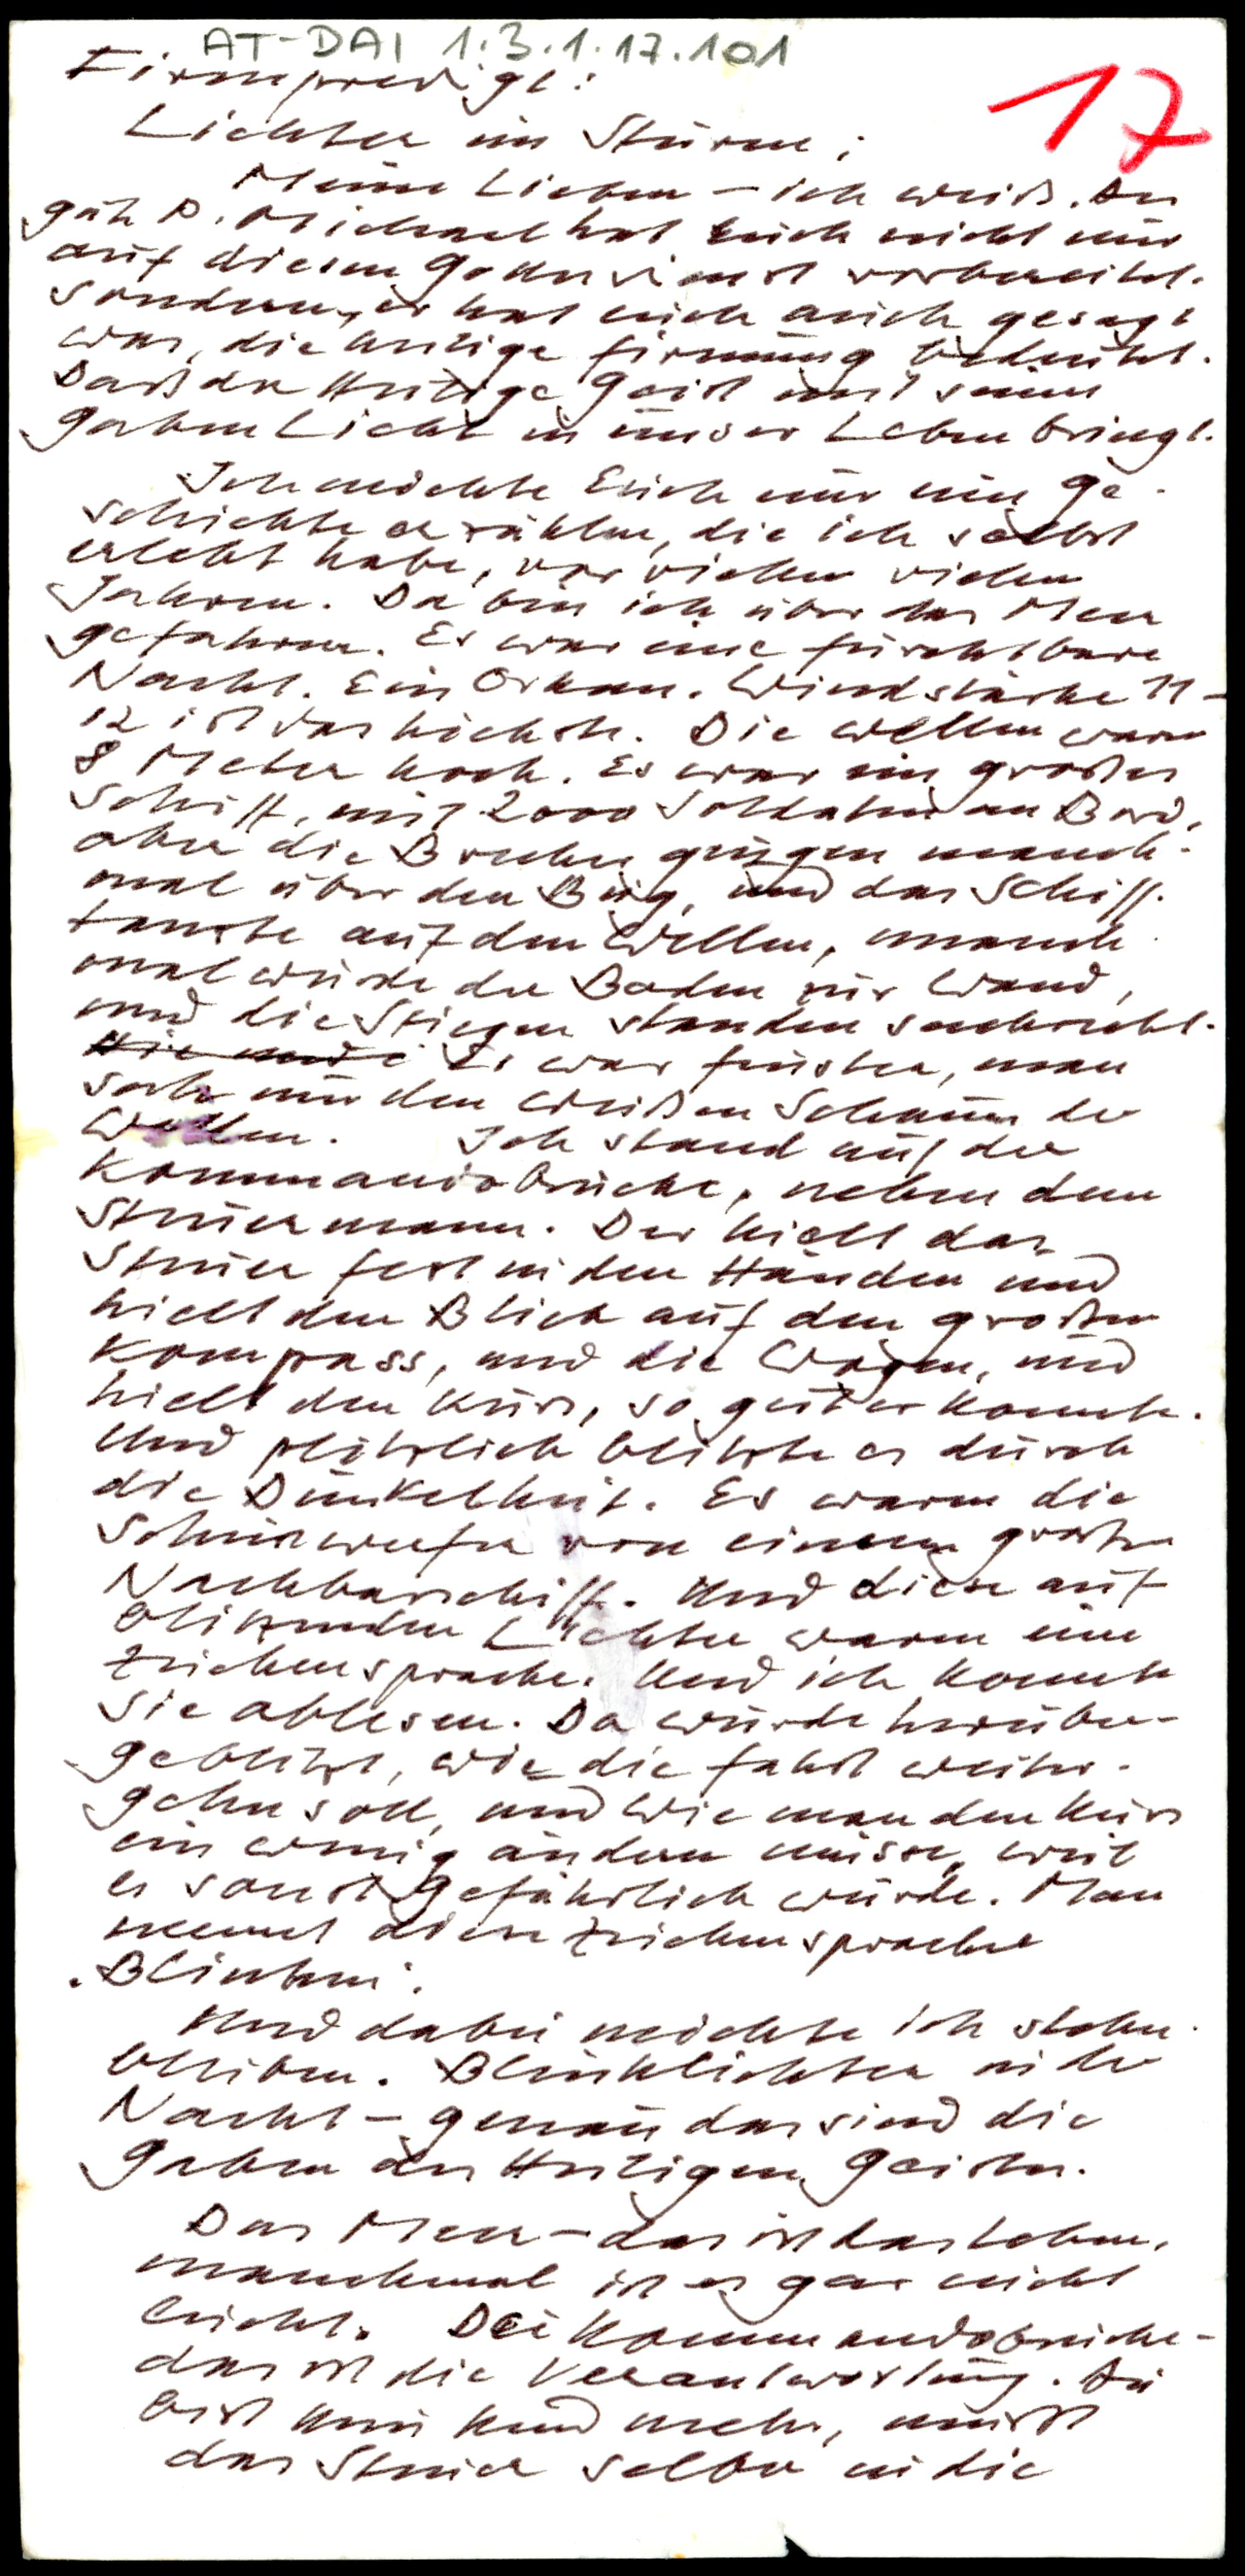 AT-DAI 1.3.1.17.101
Firmpredigt:
17
Lichter im Sturm:
Meine Lieben – ich weiß. Der
gute P. Michael hat Euch nicht nur
auf diesen Gottesdienst vorbereitet.
sondern, er hat euch auch gesagt
was, die heilige Firmung bedeutet.
Daß der Heilige Geist mit seinen
Gaben Licht in unser Leben bringt.
Ich möchte Euch nur eine Ge-
schichte erzählen, die ich selbst
erlebt habe, vor vielen vielen
Jahren. Da bin ich über das Meer
gefahren. Es war eine furchtbare
Nacht. Ein Orkan. Windstärke 11 –
12 ist das höchste. Die Wellen waren
8 Meter hoch. Es war ein großes
Schiff, mit 2000 Soldaten an Bord,
aber die Brecher gingen manch-
mal über den Bug, und das Schiff
tanzte auf den Wellen, manch-
mal wurde der Boden zur Wand,
und die Stiegen standen senkrecht.
Es war finster, man
sah nur den weißen Schaum der
Wellen. Ich stand auf der
Kommandobrücke, neben dem
Steuermann. Der hielt das
Steuer fest in den Händen und
hielt den Blick auf den großen
Kompass, und die Wogen, und
hielt den Kurs, so gut er konnte.
Und plötzlich blitzte es durch
die Dunkelheit. Es waren die
Scheinwerfer von einem großen
Nachbarschiff. Und diese auf-
blitzenden Lichter waren eine
Zeichensprache. Und ich konnte
sie ablesen. Da wurde herüber-
geblitzt, wie die Fahrt weiter-
gehn soll, und wie man den Kurs
ein wenig ändern müsse, weil
es sonst gefährlich würde. Man
nennt diese Zeichensprache
"Blinken".
Und dabei möchte ich stehen
bleiben. Blinklichter in der
Nacht – genau das sind die
Gaben des Heiligen Geistes.
Das Meer – das ist das Leben,
manchmal ist es gar nicht
leicht. Die Kommandobrücke –
das ist die Verantwortung. Du
bist kein Kind mehr, mußt
das Steuer selber in die